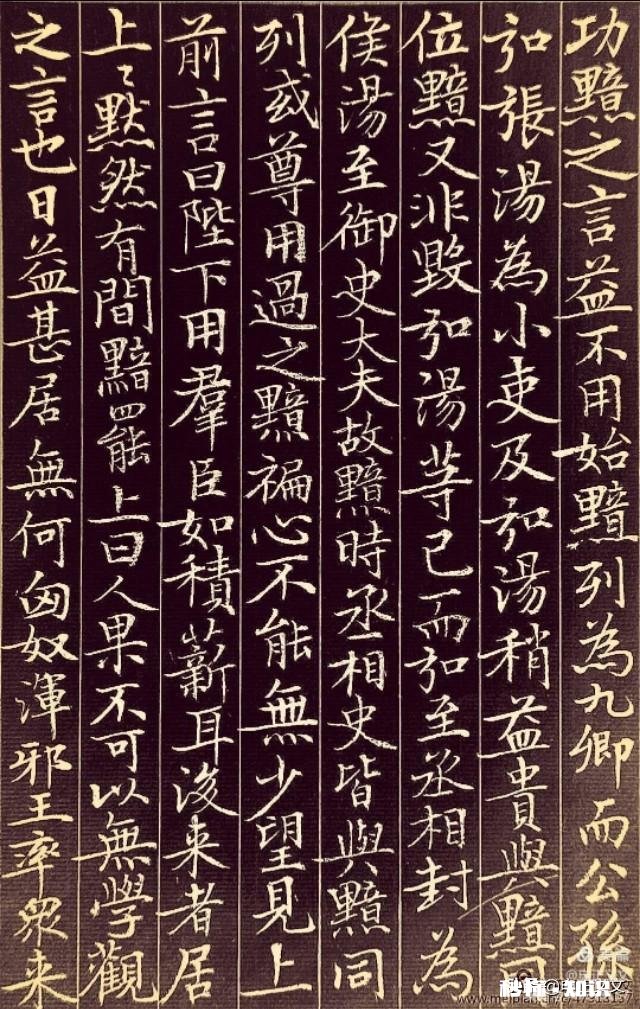 功黯之言益不用始黯列為九卿而公孫
弘張湯為小吏及弘湯稍益貴與黯同
位黯又非毀弘湯等已而弘至丞相封為
侯湯至御史大夫故黯時丞相史皆與黯同
列或尊用過之黯褊心不能無少望見上
前言曰陛下用羣臣如積薪耳後来者居
上〻黙然有間黯罷上曰人果不可以無學觀
之言也日益甚居無何匈奴渾邪王率衆来